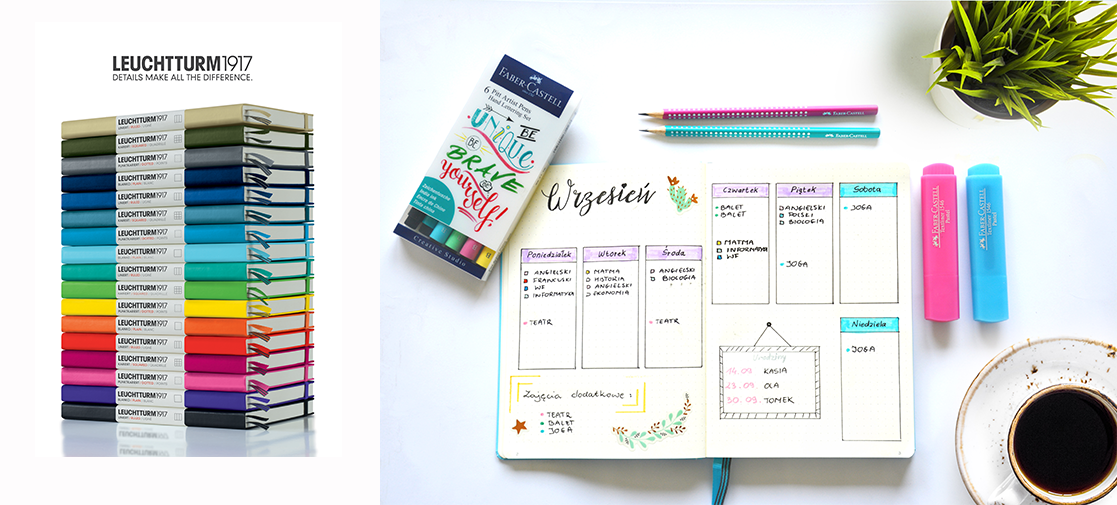 LEUCHTTURM1917
DETAILS MAKE ALL THE DIFFERENCE.
LEUCHTTURM1917
LEUCHTTURM1917
LEUCHTTURM1917
LEUCHTTURM1917
LEUCHTTURM1917
LEUCHTTURM1917
LEUCHTTURM1917
LEUCHTTURM1917
LEUCHTTURM1917
LEUCHTTURM1917
LEUCHTTURM1917
LEUCHTTURM1917
LEUCHTTURM1917
LEUCHTTURM1917
LEUCHTTURM1917
LEUCHTTURM1917
LEUCHTTURM1917
FABER-CASTELL
6 Pitt Artist Pens
Hand Lettering Set
BE
UNIQUE
BE
BRAVE
BE
yourself!
Tuschezeichner
India ink
Encre de Chine
Tinta china
Creative Studio
FABER-CASTELL
FABER-CASTELL
Wrzesień
Poniedziałek
ANGIELSKI
FRANCUSKI
WF
INFORMATYKA
TEATR
Wtorek
MATMA
HISTORIA
ANGIELSKI
EKONOMIA
Środa
ANGIELSKI
BIOLOGIA
TEATR
Zajęcia dodatkowe:
TEATR
BALET
JOGA
Czwartek
BALET
BALET
MATMA
INFORMATYKA
WF
Piątek
ANGIELSKI
POLSKI
BIOLOGIA
JOGA
Sobota
JOGA
Niedziela
JOGA
Urodziny
14.09. KASIA
23.09. OLA
30.09. TOMEK
FABER-CASTELL
Textliner 1546
Pastel
FABER-CASTELL
Textliner 1546
Pastel